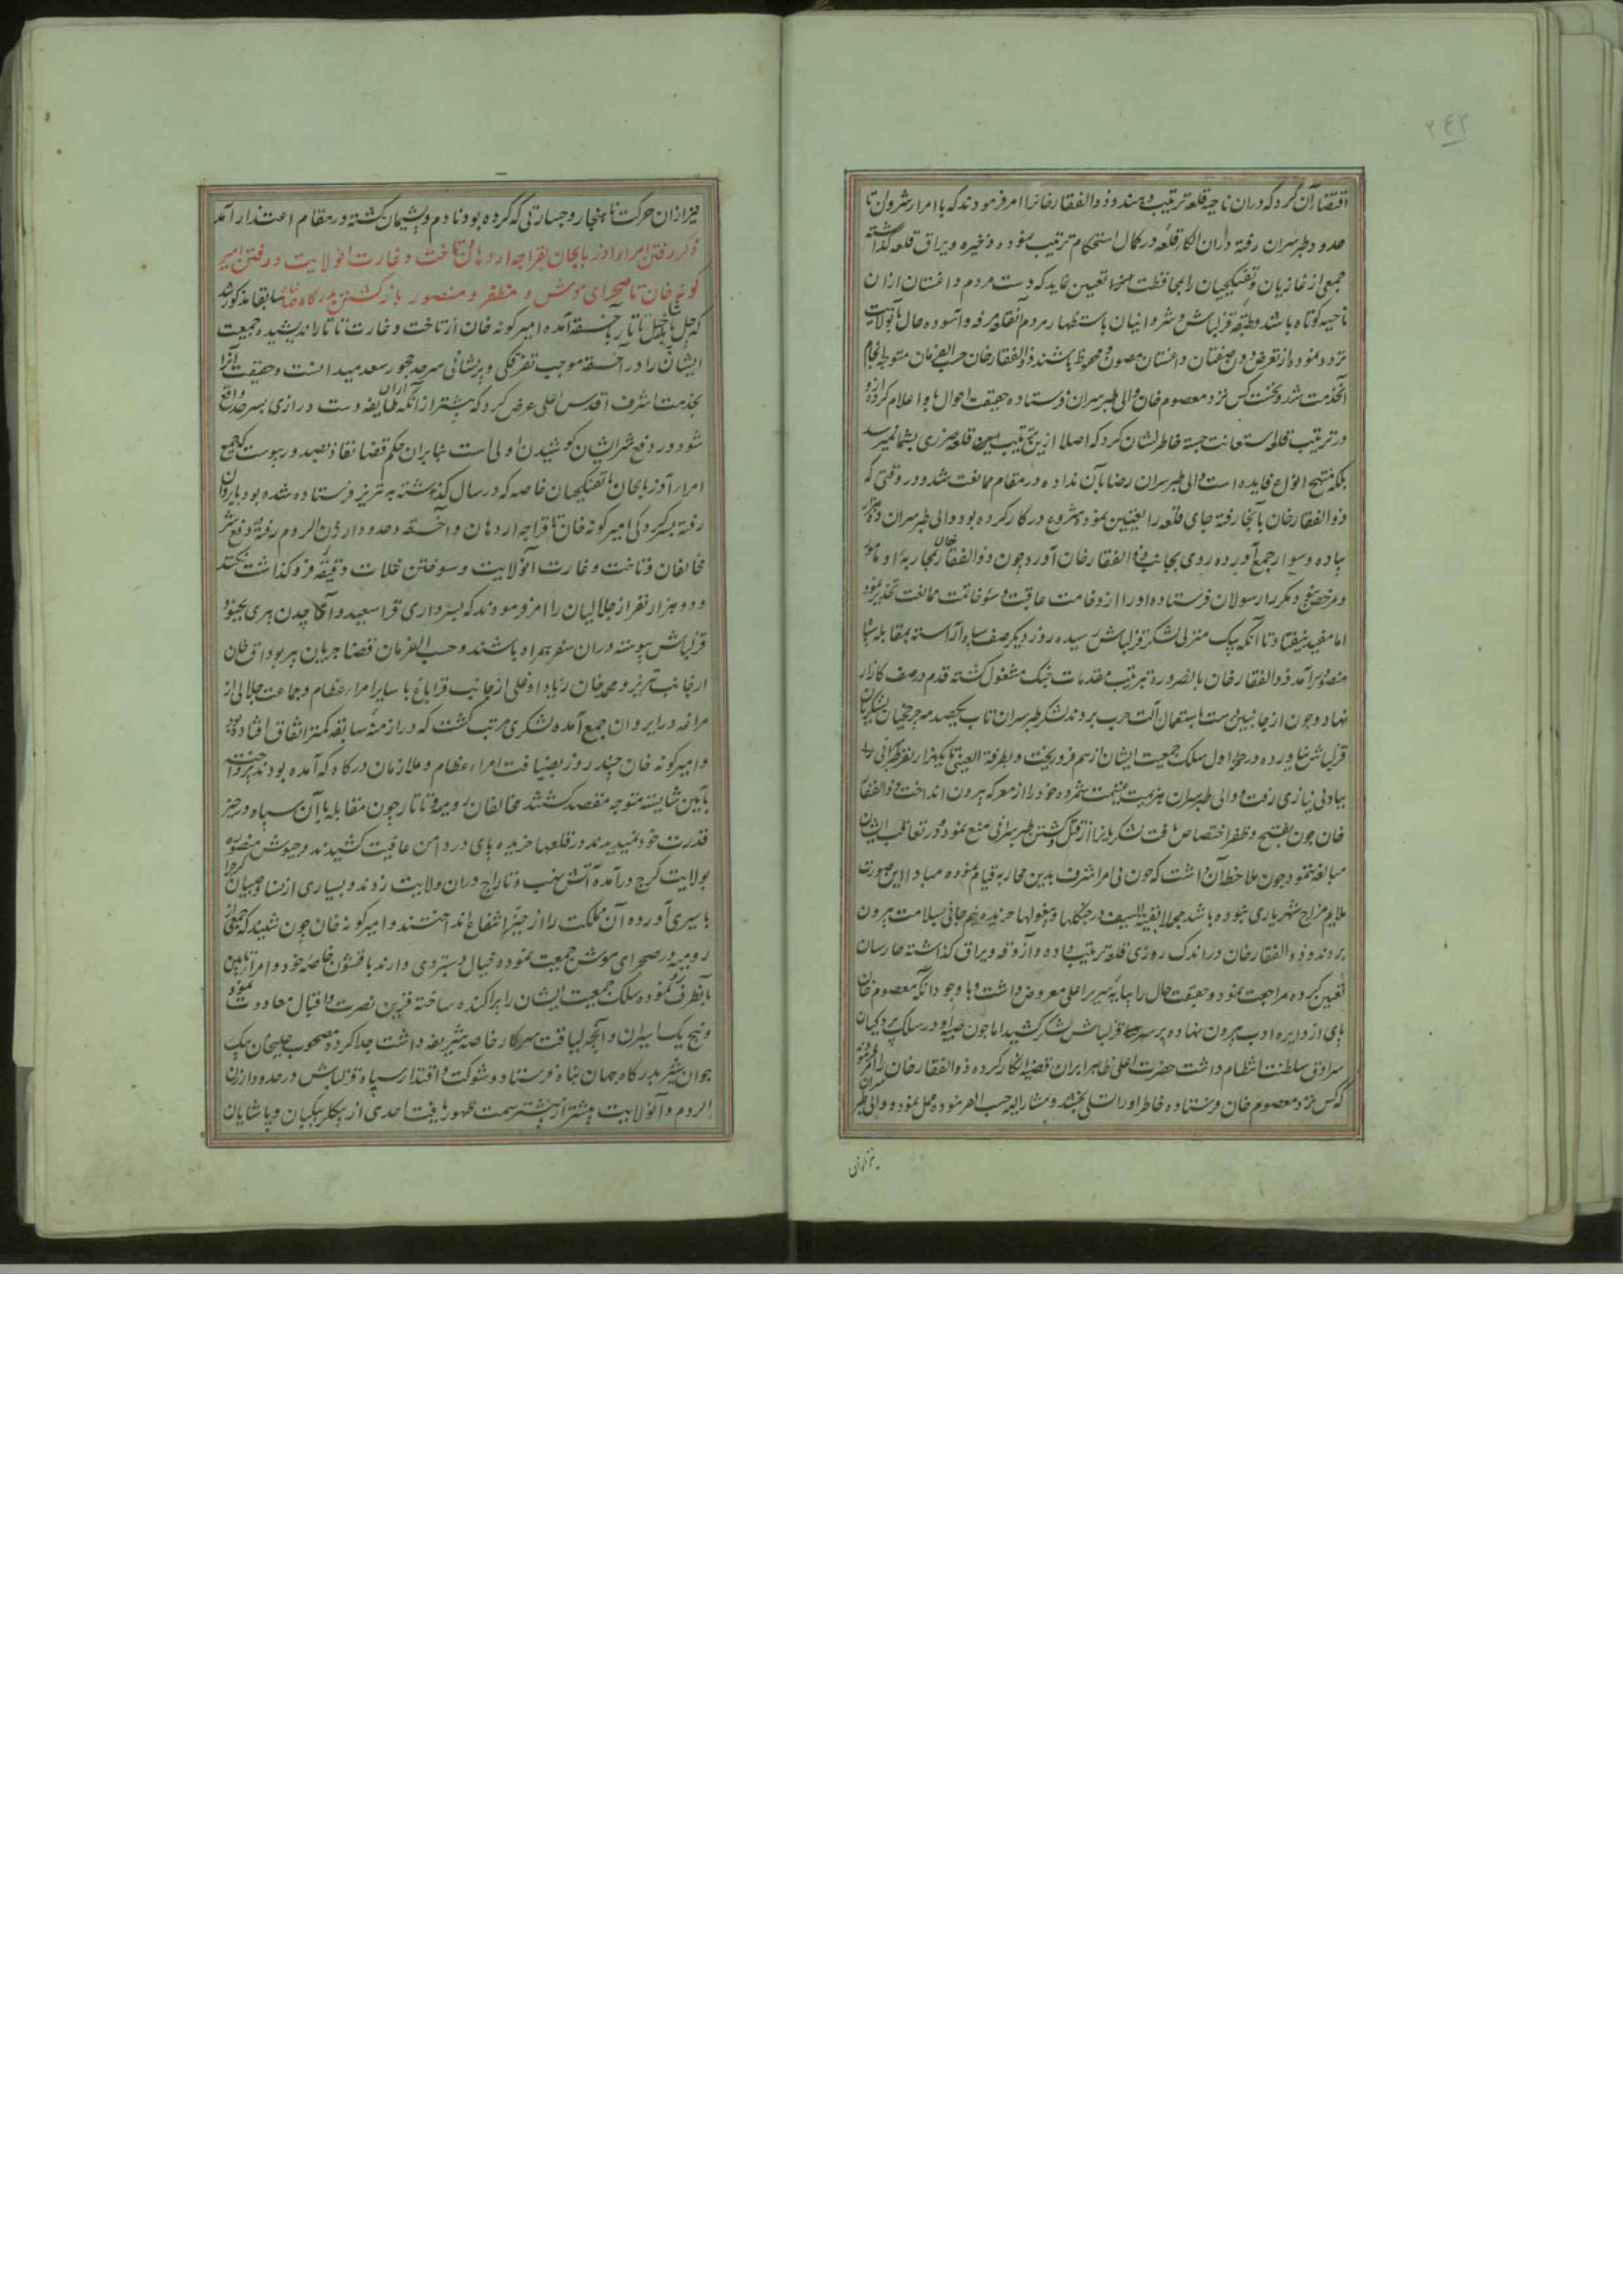 ۲۴۲
اقتضاء آن کرد که دران ناحیه قلعه ترتیب دهند و ذوالفقار خانرا امر فرمودند که با امراء شروان تا
حدود طبرسران رفته دران الکا قلعه در کمال استحکام ترتیب نموده ذخیره و یراق قلعه گذاشته
جمعی از غازیان و تفنکچیان را بمحافظت تعیین نماید که دست مردم داغستان ازان
ناحیه کوتاه باشد و طبقه قزلباش و شروانیان باستظهار مردم آنقلعه مرفه و آسوده حال بآنولایت
تردد نموده از تعرض دون صفتان داغستان مصون و محفوظ باشند ذوالفقار خان حسب الفرمان متوجه انجام
آنخدمت شد و نخست کس نزد معصوم خان والی طبرسران فرستاده حقیقت احوال باو اعلام کرده ازو
در ترتیب قلعه استعانت جسته خاطر نشان کرد که اصلا ازین ترتیب قلعه ضرری بشما نمیرسد
بلکه منتج انواع فایده است والی طبرسران رضا بآن نداده در مقام ممانعت شد و در وقتی که
ذوالفقار خان بآنجا رفته جای قلعه را تعیین نموده شروع در کار کرده بود والی طبرسران ده هزار
پیاده و سوار جمع آورده روی بجانب ذوالفقار خان آورد چون ذوالفقار خان بمحاربه او مامور
و مرخص نبود مکرر رسولان فرستاده او را از وخامت عاقبت و سوء خاتمت ممانعت تحذیر نمود
اما مفید نیفتاد تا آنکه بیک منزلی لشکر قزلباش رسیده روز دیگر صف سپاه آراسته بمقابله سپاه
منصور آمد ذوالفقار خان بالضروره بترتیب مقدمات جنک مشغول گشته قدم در صف کارزار
نهاد و چون از جانبین دست باستعمال آلت حرب بردند لشکر طبرسران تاب یکصدمه چرخچیان لشکریان
قزلباش نیاورده در حمله اول سلک جمعیت ایشان از هم فروریخت و بطرفة العینی یکهزار نفر طبرسرانی
بباد بی نیازی رفت و والی طبرسران هزیمت غنیمت شمرده خود را از معرکه بیرون انداخت و ذوالفقار
خان چون بفتح و ظفر اختصاص یافت لشکریانرا از قتل و کشتن طبرسرانی منع نمود و در تعاقب ایشان
مبالغه ننمود چون ملاحظه آن داشت که چون بی امر اشرف بدین محاربه قیام نموده مبادا این صورت
ملایم مزاج شهریاری نبوده باشد مجملا بقیة السیف در جنگلها و بیغولها خزیده نیم جانی بسلامت بیرون
بردند و ذوالفقار خان در اندک روزی قلعه ترتیب داده و آذوقه و یراق گذاشته حارسان
تعیین کرده مراجعت نمود و حقیقت حال را بپایه سریر اعلی معروض داشت و با وجود آنکه معصوم خان
پای از دایره ادب بیرون نهاده بر سر سپاه قزلباش لشکر کشید اما چون صبیه او در سلک پردکیان
سرادق سلطنت انتظام داشت حضرت اعلی ظاهرا بران قضیه انکار کرده ذوالفقار خان را امر فرمودند
که کس نزد معصوم خان فرستاده خاطر او را تسلی بخشد و مشار الیه حسب الفرموده عمل نمود و والی طبرسران
نیز ازان
نیز ازان حرکت ناهنجار و جسارتی که کرده بود نادم و پشیمان گشته در مقام اعتذار آمد
ذکر رفتن امراء آذربایجان بقراجه اردهان و تاخت و غارت انولایت و رفتن امیر
کونه خان تا صحرای موش و مظفر و منصور باز گشتن بدرگاه شاه سابقا مذکور شد
که چون شاهین تاتار باخسقه آمده امیر کونه خان از تاخت و غارت تاتار اندیشیده جمعیت
ایشان را در آخسقه موجب تفرقکی و پریشانی سرحد چخور سعد میدانست و حقیقت آنرا
بخدمت اشرف اقدس اعلی عرض کرد که پیشتر از آنکه ازان طایفه دست درازی بسرحد واقع
شود در دفع شر ایشان کوشیدن اولی است بنابران حکم قضا نفاذ بصدور پیوست که جمیع
امراء آذربایجان با تفنکچیان خاصه که در سال گذشته به تبریز فرستاده شده بود بایروان
رفته بسرکردکی امیر کونه خان تا قراجه اردهان و آخسقه و حدود ارزن الروم رفته در دفع شر
مخالفان و تاخت و غارت انولایت و سوختن غلات دقیقه فروگذاشت نکنند
و دو هزار نفر از جلالیان را امر فرمودند که بسرداری قرا سعید و آغاچدن پیری بجنود
قزلباش پیوسته دران سفر همراه باشند و حسب الفرمان قضا جریان پیر بوداق خان
از جانب تبریز و محمد خان زیاد اوغلی از جانب قراباغ با سایر امراء عظام و جماعت جلالی از
مراغه در ایروان جمع آمده لشکری مرتب گشت که در ازمنه سابقه کمتر اتفاق افتاده بود
و امیر کونه خان چند روز بضیافت امراء عظام و ملازمان درگاه که آمده بودند پرداخت
بآیین شایسته متوجه مقصد گشتند مخالفان رومیه و تاتار چون مقابله با آن سپاه در حیز
قدرت خود ندیدند در قلعها خزیده پای در دامن عافیت کشیدند و جیوش منصوره
بولایت کرج درآمده آتش نهب و تاراج دران ولایت زدند و بسیاری از نسا و صبیان کرج را
باسیری آورده آن مملکت را از حیز انتفاع انداختند و امیر کونه خان چون شنید که جمعی از
رومیه در صحرای موش جمعیت نموده خیال دستبردی دارند با قشون خاصه خود و امرا تابین
بآنطرف رو نموده سلک جمعیت ایشان را پراکنده ساخته قرین نصرت و اقبال معاودت نمود
و پنج یک اسیران و آنچه لیاقت سرکار خاصه شریفه داشت جدا کرده مصحوب علیخان بیک
جوان شیر بدرگاه جهان پناه فرستاد و شوکت و اقتدار سپاه قزلباش در حدود ارزن
الروم و آنولایت بیشتر از پیشتر سمت ظهور یافت احدی از بیکلربیکیان و پاشایان